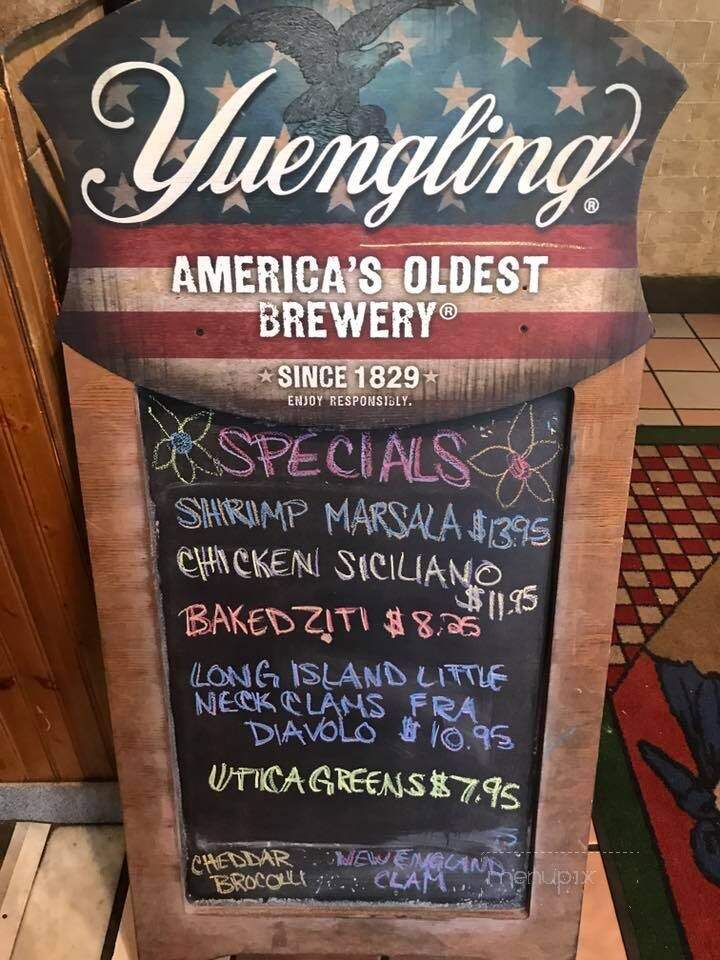 Yuengling®
AMERICA'S OLDEST
BREWERY®
SINCE 1829
ENJOY RESPONSIBLY.
SPECIALS
SHRIMP MARSALA $13.95
CHICKEN SICILIANO
$11.95
BAKED ZITI $8.25
LONG ISLAND LITTLE
NECK CLAMS FRA
DIAVOLO $10.95
UTICA GREENS $7.95
CHEDDAR
BROCOLLI
NEW ENGLAND
CLAM
menupix